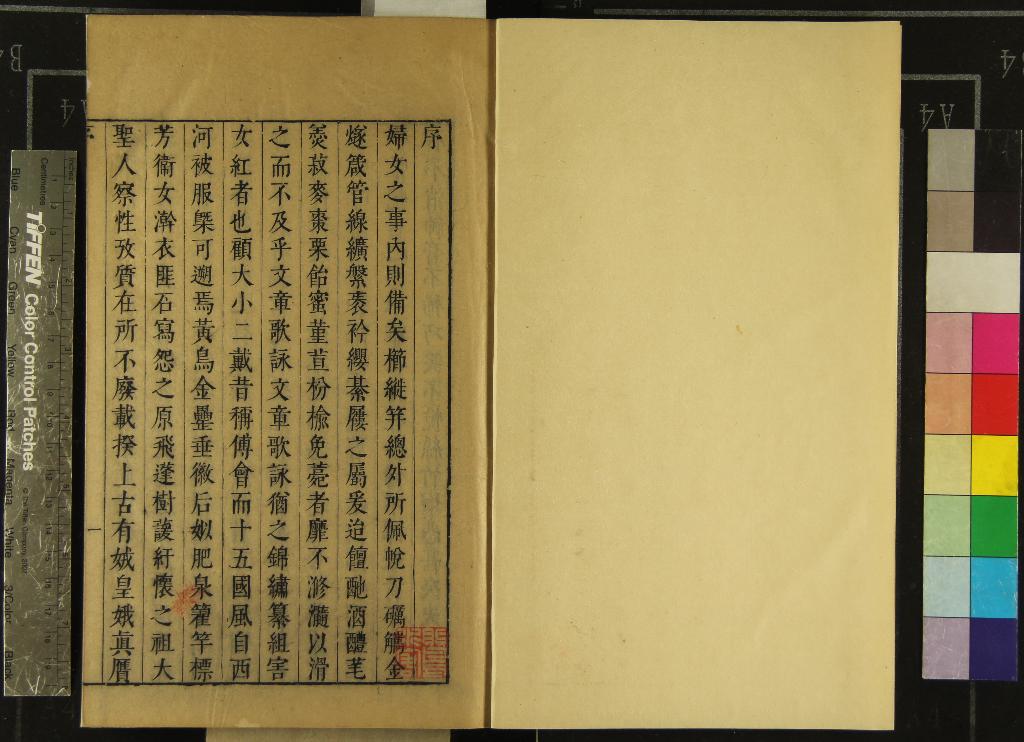 序
婦女之事內則備矣櫛縰笄總外所佩帨刀礪觿金
燧箴管線纊縏袠衿纓綦屨之屬爰迨饘酏酒醴芼
羮菽麥棗栗飴蜜菫荁枌榆免薧者靡不滫瀡以滑
之而不及乎文章歌詠文章歌詠猶之錦繡纂組害
女紅者也顧大小二戴昔稱傅會而十五國風自西
河被服槩可遡焉黃鳥金罍垂徽后姒肥泉籊竿標
芳衞女澣衣匪石寫怨之原飛蓬樹諼紆懷之祖大
聖人察性攷質在所不廢載揆上古有娀皇娥眞贗
一
inches
Centimetres
TIFFEN Color Control Patches
Blue
Cyan
Green
Yellow
Red
Magenta
White
3/Color
Black
A4
A4